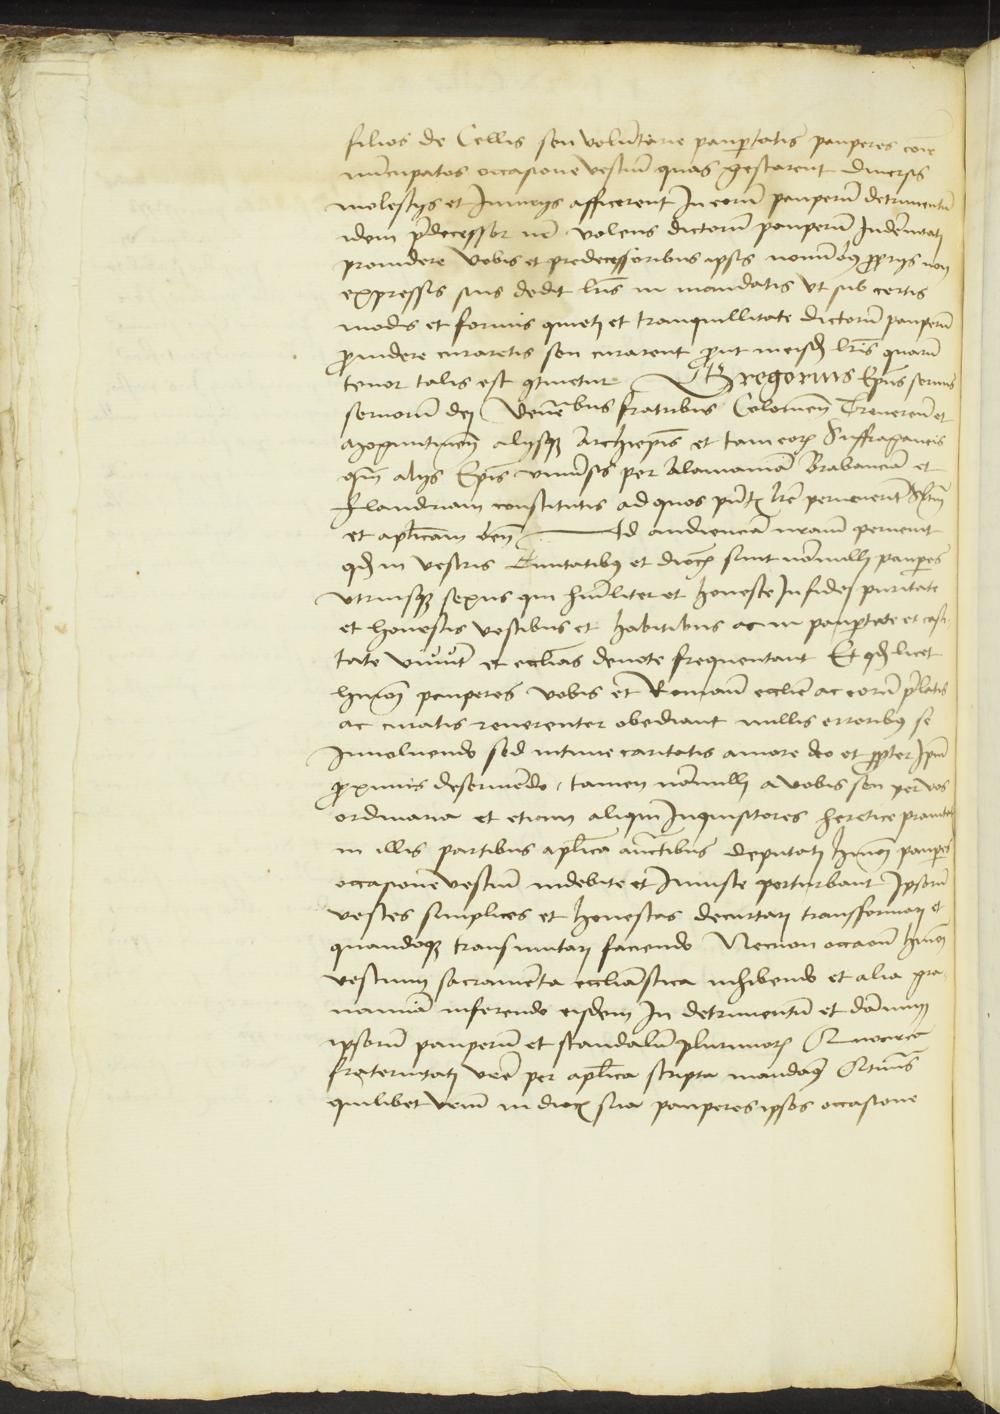 filios de Cellis seu voluntarie paupertatis pauperes coiter
nuncupatos occasione vestium quas gestarent diversis
molestijs et Iniurijs afficerent In eorum pauperum detrimentum
idem predecessor nr volens dictorum pauperum Indemnitati
providere vobis et predecessoribus ipsis nominibus proprijs non
expressis suis dedit lris in mandatis ut sub certis
modis et formis quieti et tranquillitate dictorum pauperum
providere curaretis seu curarent prout in eisdem lris quarum
tenor talis est continetur Gregorius Eps servus
servorum dei Venebilibus fratribus Colonien Treveren et
Maguntinen alijsque Archiepis et tam eorum Suffraganeis
quam alijs Epis universis per Alamaniam Brabanciam et
Flandriam constitutis ad quos pntes lre pervenerint Saltm
et aplicam ben Ad audienciam nram pervenit
quod in vestris Civitatibus et dioc sunt nonnulli pauperes
utriusque sexus qui humiliter et honeste In fidei puritate
et honestis vestibus et habitibus ac in paupertate et casti
tate vivunt et ecclias devote frequentant Et quod licet
hmoi pauperes vobis et Romane ecclie ac eorum prelatis
ac curatis reverenter obediant nullis erroribus se
Involvendo sed intime caritatis amore deo et propter Ipm
proximis deserviendo, tamen nonnulli a vobis seu per vos
ordinaria et etiam aliqui Inquisitores heretice pravitatis
in illis partibus aplica auctibus deputati hmoi pauperes
occasione vestium indebite et Iniuste perturbant Ipsorum
vestes simplices et honestas decurtari transformari et
quandoque transmutari faciendo Necnon occaone hmoi
vestium sacramenta eccliastica inhibendo et alia gra
vamina inferendo eisdem In detrimentum et damnum
ipsorum pauperum et scandalum plurimorum Quocirca
fraternitati vre per aplica scripta mandamus Quatinus
quilibet vrum in dioc sua pauperes ipsos occasione